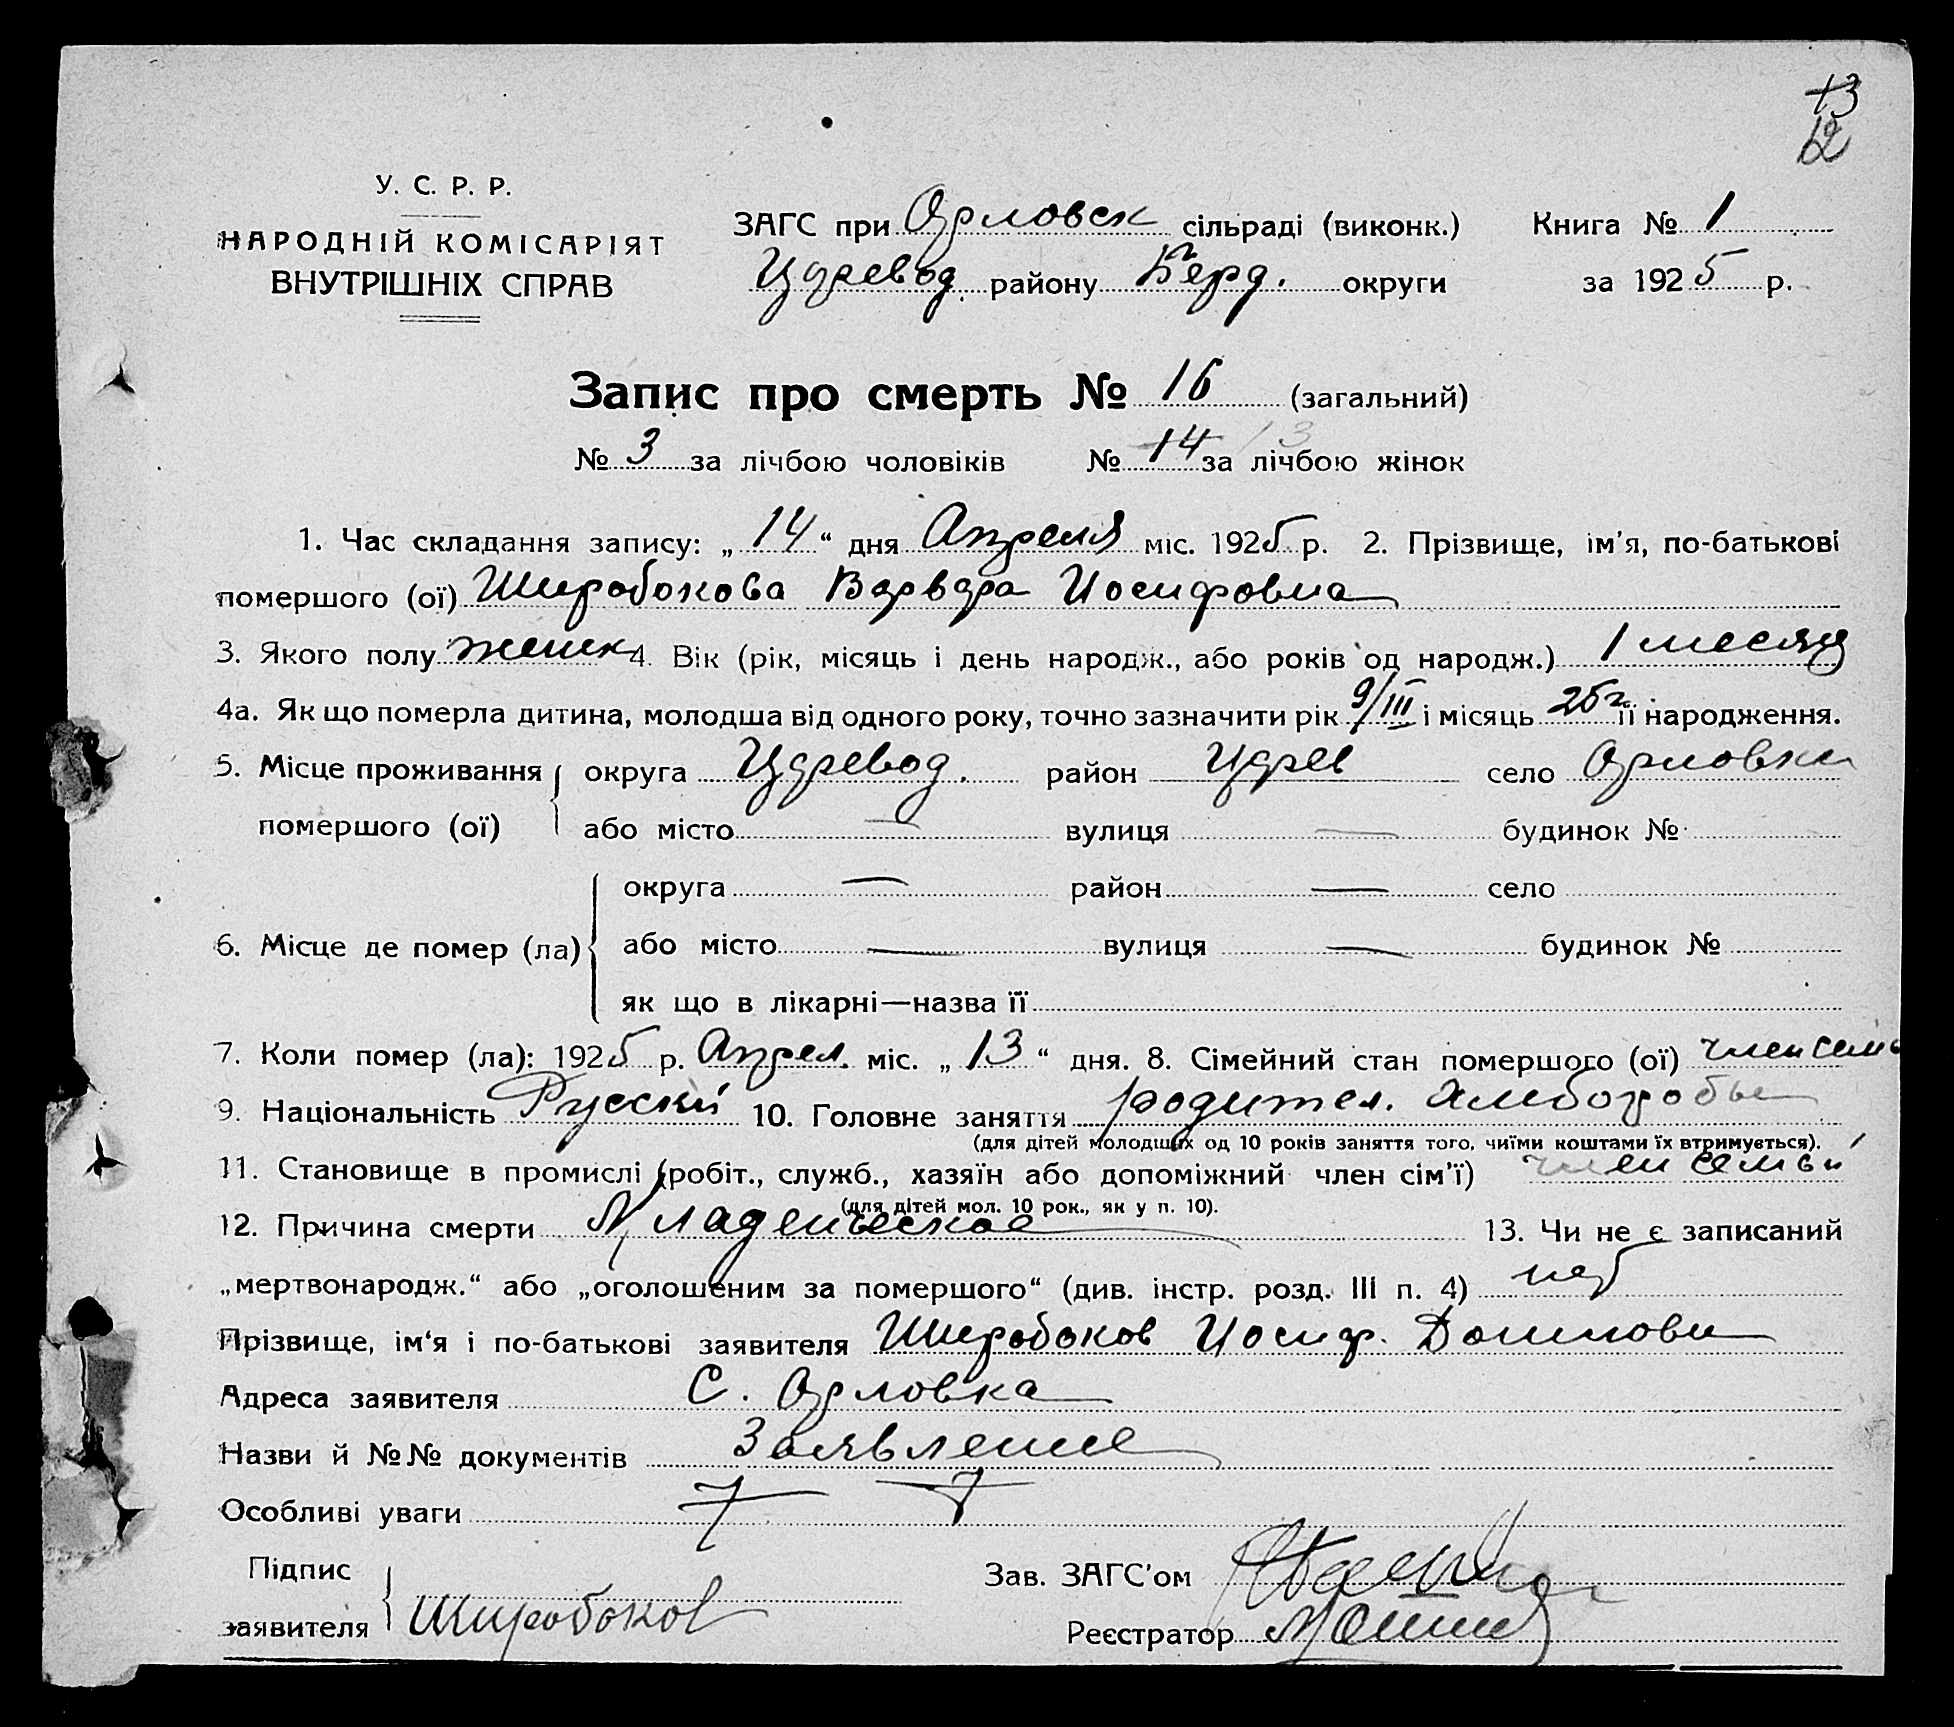 13
12
У. С. Р. Р.
НАРОДНІЙ КОМІСАРІЯТ
ВНУТРІШНІХ СПРАВ
ЗАГС при Орловск сільраді (виконк.) Книга № 1
Царевод. району Берд. округи за 1925 р.
Запис про смерть № 16 (загальний)
№ 3 за лічбою чоловіків № 14 13 за лічбою жінок
1. Час складання запису: „14“ дня Апреля міс. 1925 р. 2. Прізвище, ім’я, по-батькові
помершого (ої) Широбокова Варвара Иосифовна
3. Якого полу женск 4. Вік (рік, місяць і день народж., або років од народж.) 1 месяц
4а. Як що померла дитина, молодша від одного року, точно зазначити рік 9/III і місяць 25 г. її народження.
5. Місце проживання округа Царевод. район Царев село Орловка
помершого (ої) або місто — вулиця — будинок №
округа — район — село
6. Місце де помер (ла) або місто — вулиця — будинок №
як що в лікарні—назва її
7. Коли помер (ла): 1925 р. Апрел. міс. „13“ дня. 8. Сімейний стан помершого (ої) член семь
9. Національність Русский 10. Головне заняття родител.
(для дітей молодших од 10 років заняття того, чиїми коштами їх втримується).
11. Становище в промислі (робіт., служб., хазяїн або допоміжний член сім’ї) член семьи
(для дітей мол. 10 рок., як у п. 10).
12. Причина смерти Младенческое 13. Чи не є записаний
„мертвонародж.“ або „оголошеним за помершого“ (див. інстр. розд. III п. 4) нет
Прізвище, ім‘я і по-батькові заявителя Широбоков Иосиф.
Адреса заявителя С. Орловка
Назви й №№ документів Заявление
Особливі уваги
Підпис
заявителя Широбоков
Зав. ЗАГС’ом
Реєстратор